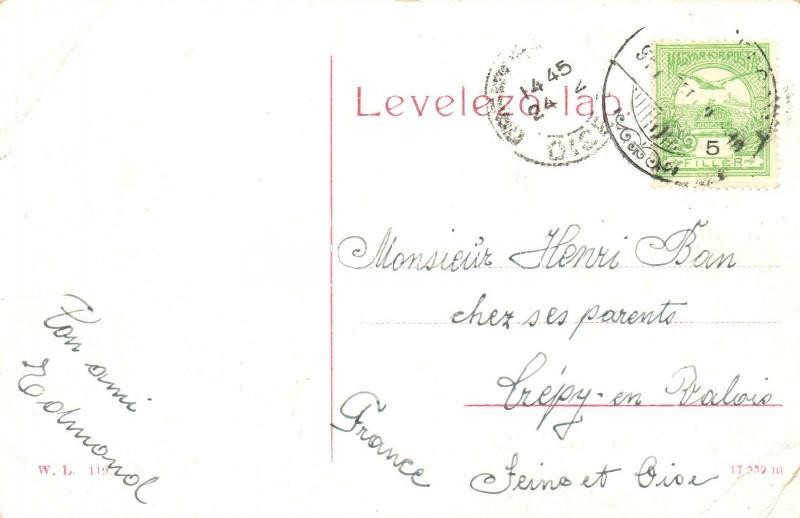 Levelező-lap
MAGYAR KIR POSTA
5
FILLER
1445
24 V
OIS
Monsieur Henri Ban
chez ses parents
Crépy-en Valois
Seine et Oise
France
Ton ami
Edmond
W. L. 119
17 939 m